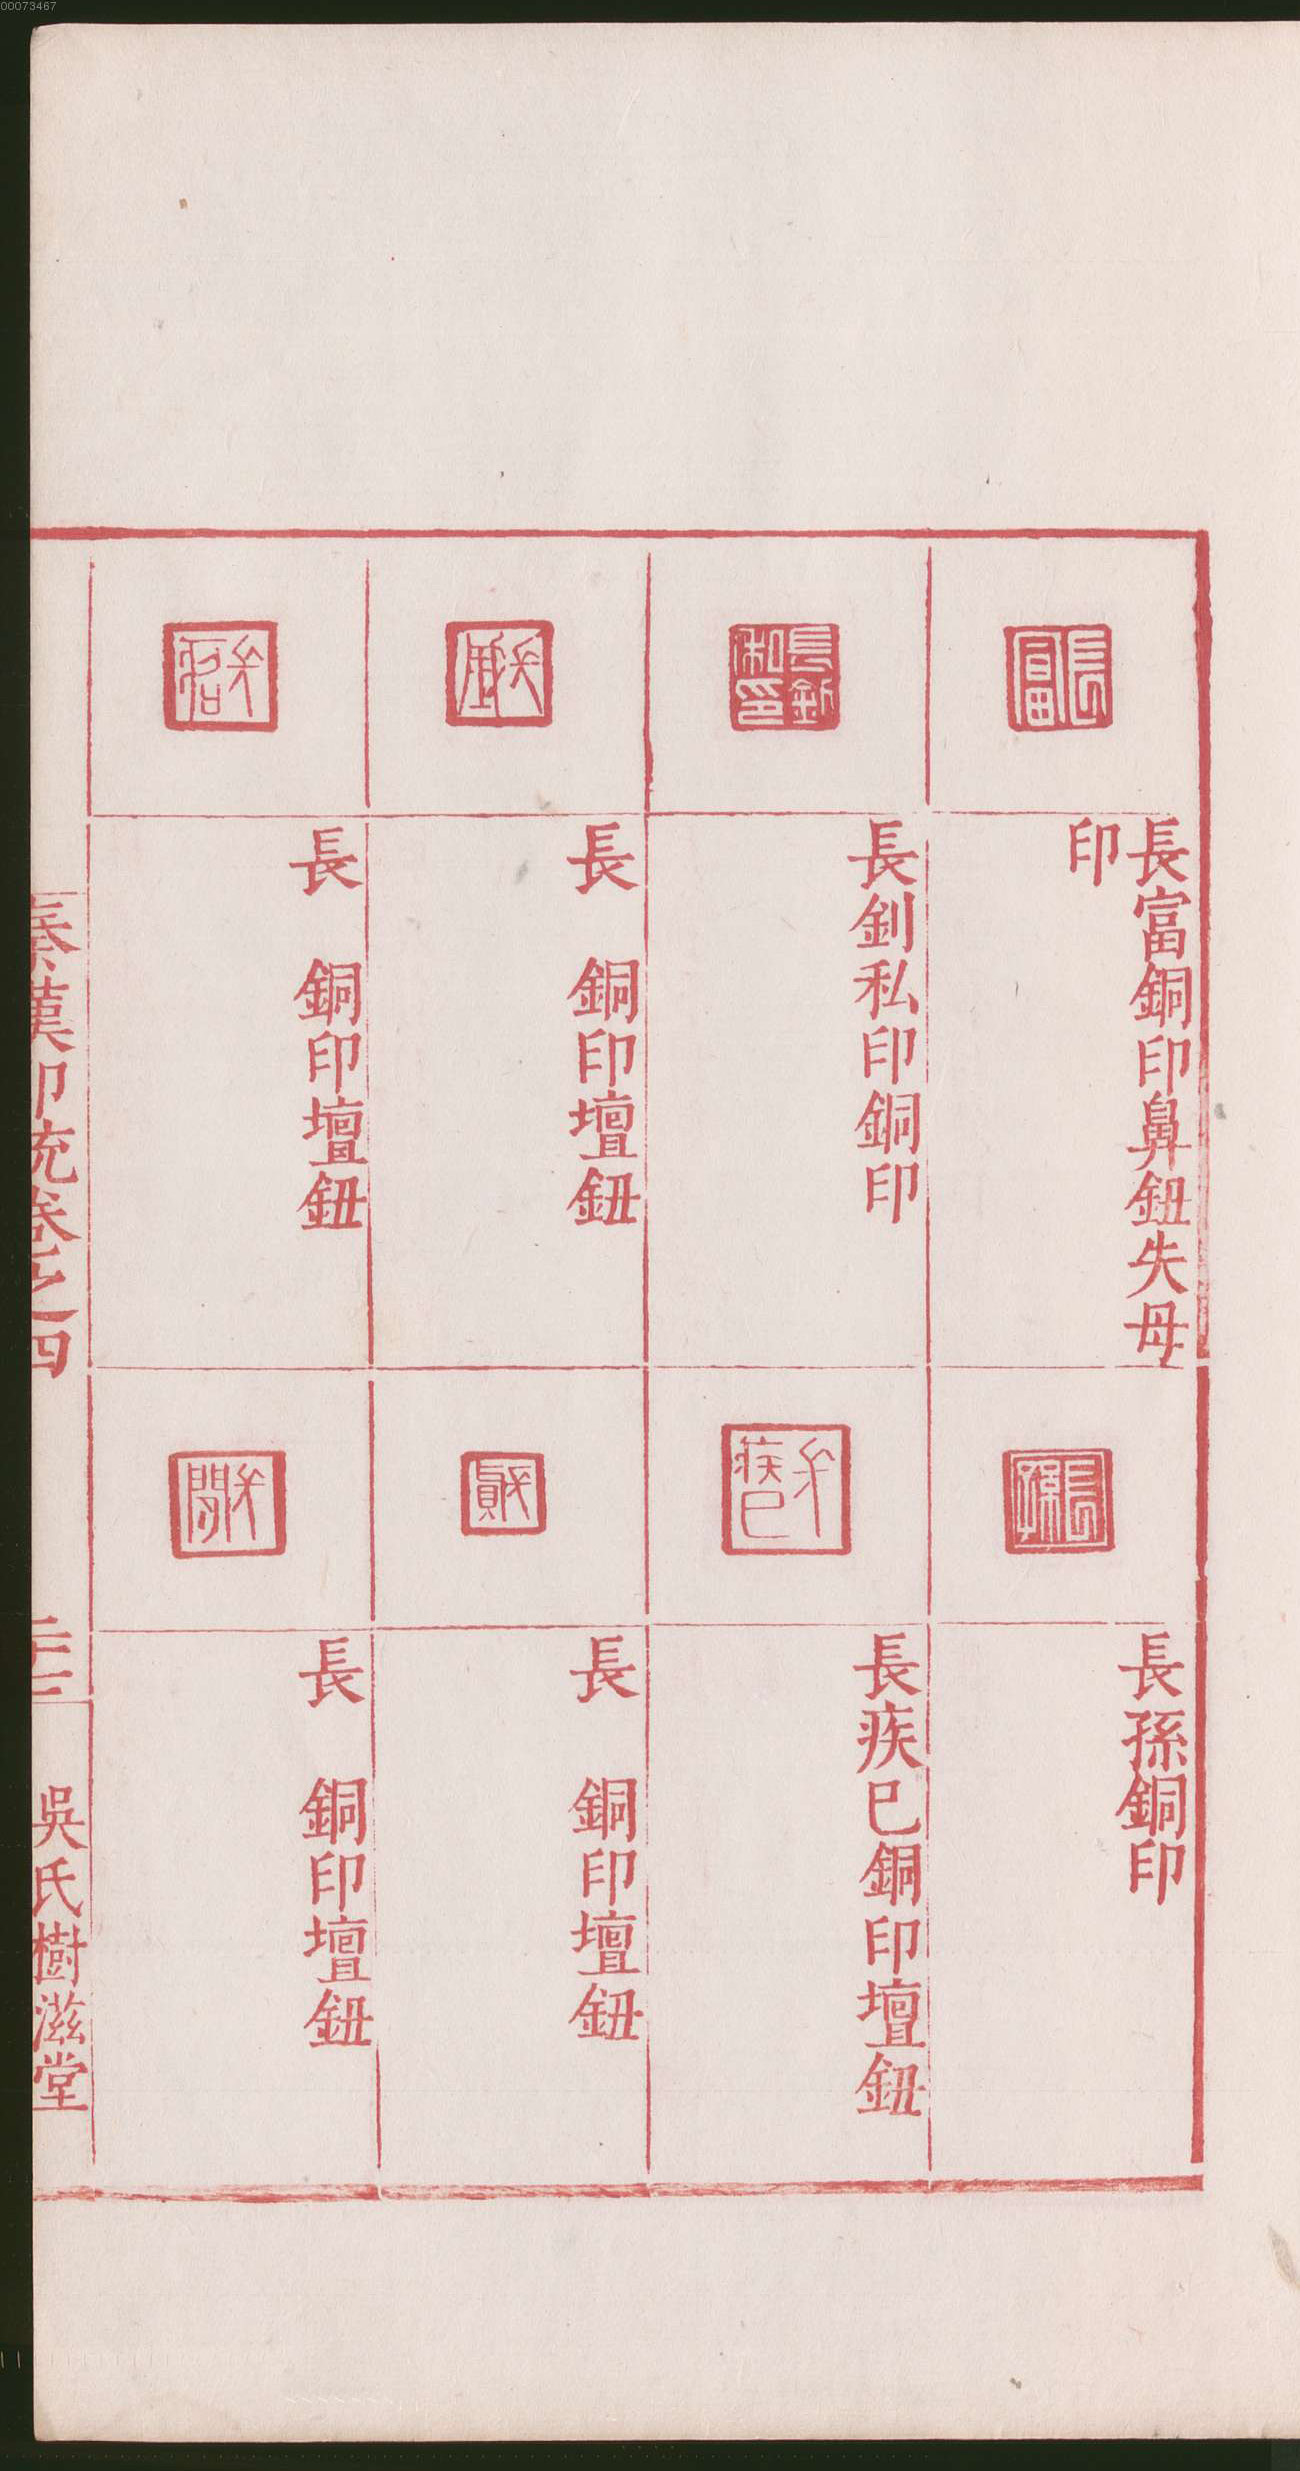 00073467
長富銅印鼻鈕失母
印
長釗私印銅印
長　銅印壇鈕
長　銅印壇鈕
長孫銅印
長疾巳銅印壇鈕
長　銅印壇鈕
長　銅印壇鈕
秦漢印統卷之四
二十三
吳氏樹滋堂